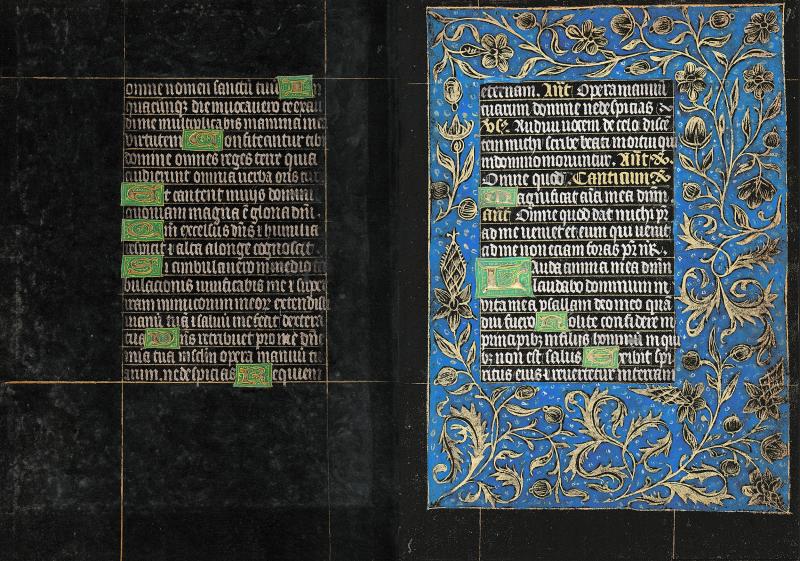 omne nomen sanctū tuū In
quacūqʒ die invocavero te exau
di me multiplicabis in anima mea
virtutem Confiteantur tibi
domine omnes reges terre quia
audierunt omnia verba oris tui
Et cantent in viis domini
quoniam magna ē gloria dn̄i
Qm̄ excelsus dn̄s ⁊ humilia
respicit ⁊ alta a longe cognoscit
Si ambulavero in medio tri
bulacionis vivificabis me ⁊ supe
iram inimicorum meoꝝ extendisti
manū tuā ⁊ salvū me fecit dextera
tua Dn̄s retribuet pro me dn̄e
mia tua in sc̄lm opera manuū tu
arum ne despicias Requiem
eternam. Ant̄ Opera manuū
tuarum domine ne despicias ꝛc
Vs̄ Audivi vocem de celo dicē
tem michi scribe beati mortui qui
in domino moriuntur. Ant̄ ꝛc.
Omne quod Canticum ꝛc
Magnificat aīa mea dn̄m
ant̄ Omne quod dat michi pr̄
ad me veniet et eum qui venit
ad me non eiciam foras pr̄ nr̄.
Lauda anima mea dn̄m
laudabo dominum in
vita mea psallam deo meo quā
diu fuero Nolite confidere in
principibʒ in filiis hominū in qui
bʒ non est salus Exibit spi
ritus eius ⁊ revertetur in terram